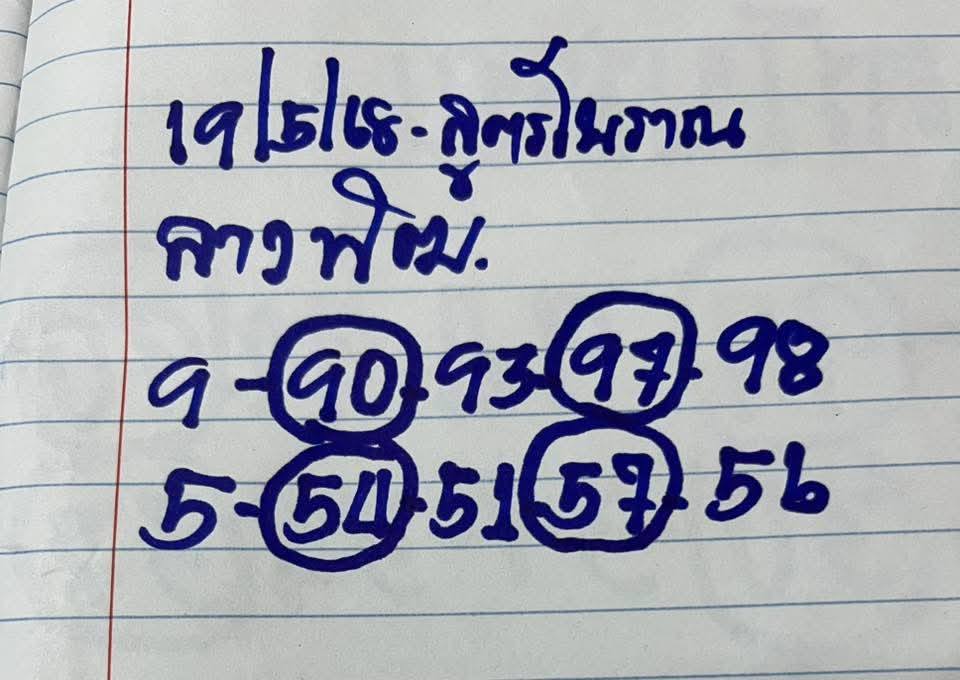 19/5/68-สูตรโบราณ
ลาวพัฒ.
9-90.93-97-98
5-54-51-57-56